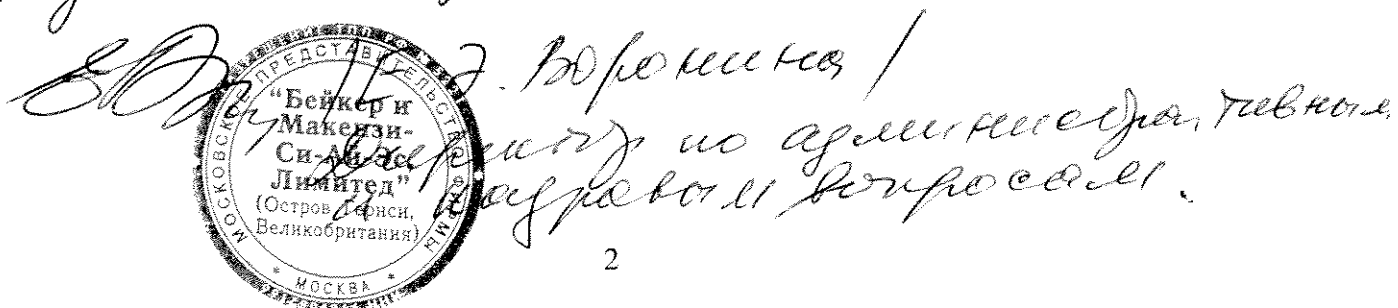 Э. Воронина/
Директор по административным
и кадровым вопросам.
МОСКОВСКОЕ ПРЕДСТАВИТЕЛЬСТВО ФИРМЫ
"Бейкер и
Макензи-
Си-Ай-Эс,
Лимитед"
(Остров Гернси,
Великобритания)
* МОСКВА *
2